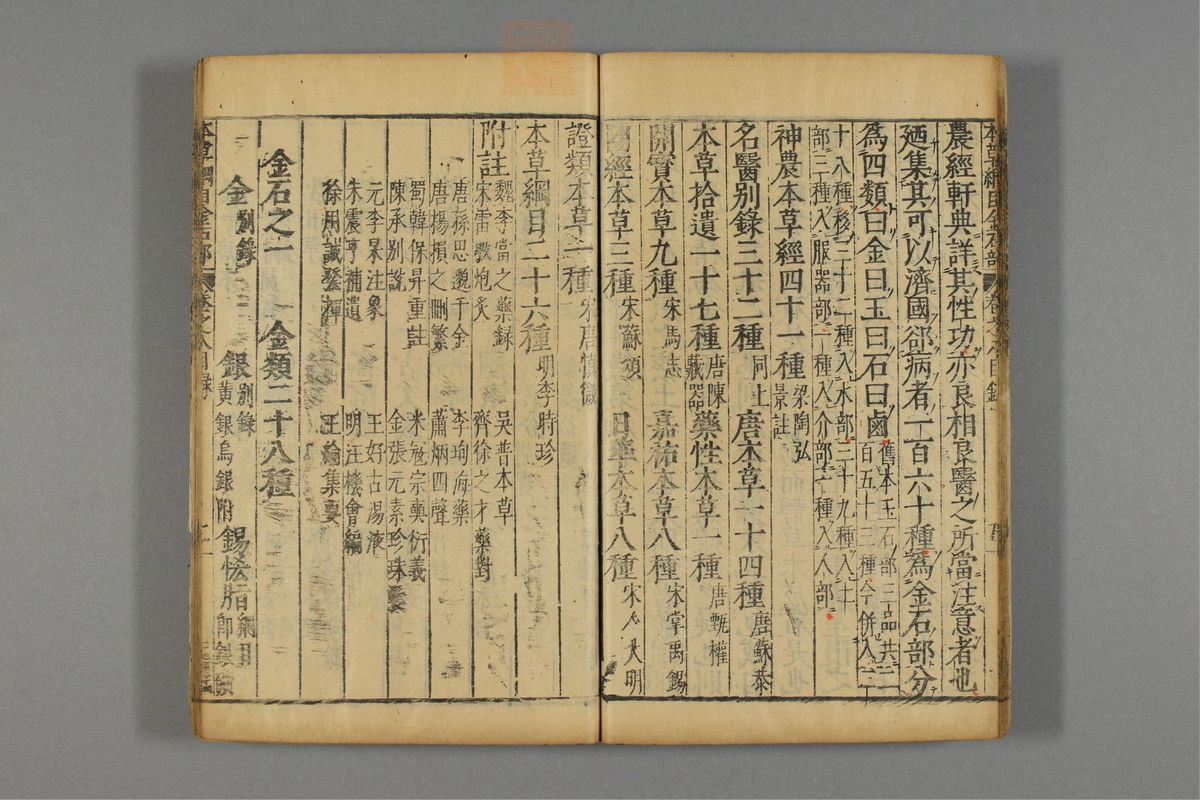 農經軒典詳其性功亦良相良醫之所當注意者也
廼集其可以濟國郤病者一百六十種為金石部分
為四類曰金曰玉曰石曰鹵 舊本玉石部三品共二
百五十三種今併入二十
八種移三十二種入水部三十九種入土
部三種入服器部一種入介部一種入人部
神農本草經四十一種 梁陶弘
景註
名醫別錄三十二種 同上 唐本草一十四種 唐蘇恭
本草拾遺一十七種 唐陳
藏器 藥性本草一種 唐甄權
開寶本草九種 宋馬志 嘉祐本草八種 宋掌禹錫
圖經本草三種 宋蘇頌 日華本草八種 宋人大明
證類本草一種 宋唐慎微
本草綱目二十六種 明李時珍
附註 魏李當之藥録 吳普本草
宋雷斆炮炙 齊徐之才藥對
唐孫思邈千金 李珣海藥
唐楊損之刪繁 蕭炳四聲
蜀韓保昇重註 宋寇宗奭衍義
陳承別說 金張元素珍珠
元李杲法象 王好古湯液
朱震亨補遺 明汪機會編
徐用誠發揮 王綸集要
金石之一 金類二十八種
金 別錄 銀 別錄
黃銀烏銀附 錫恡脂 綱目
即銀